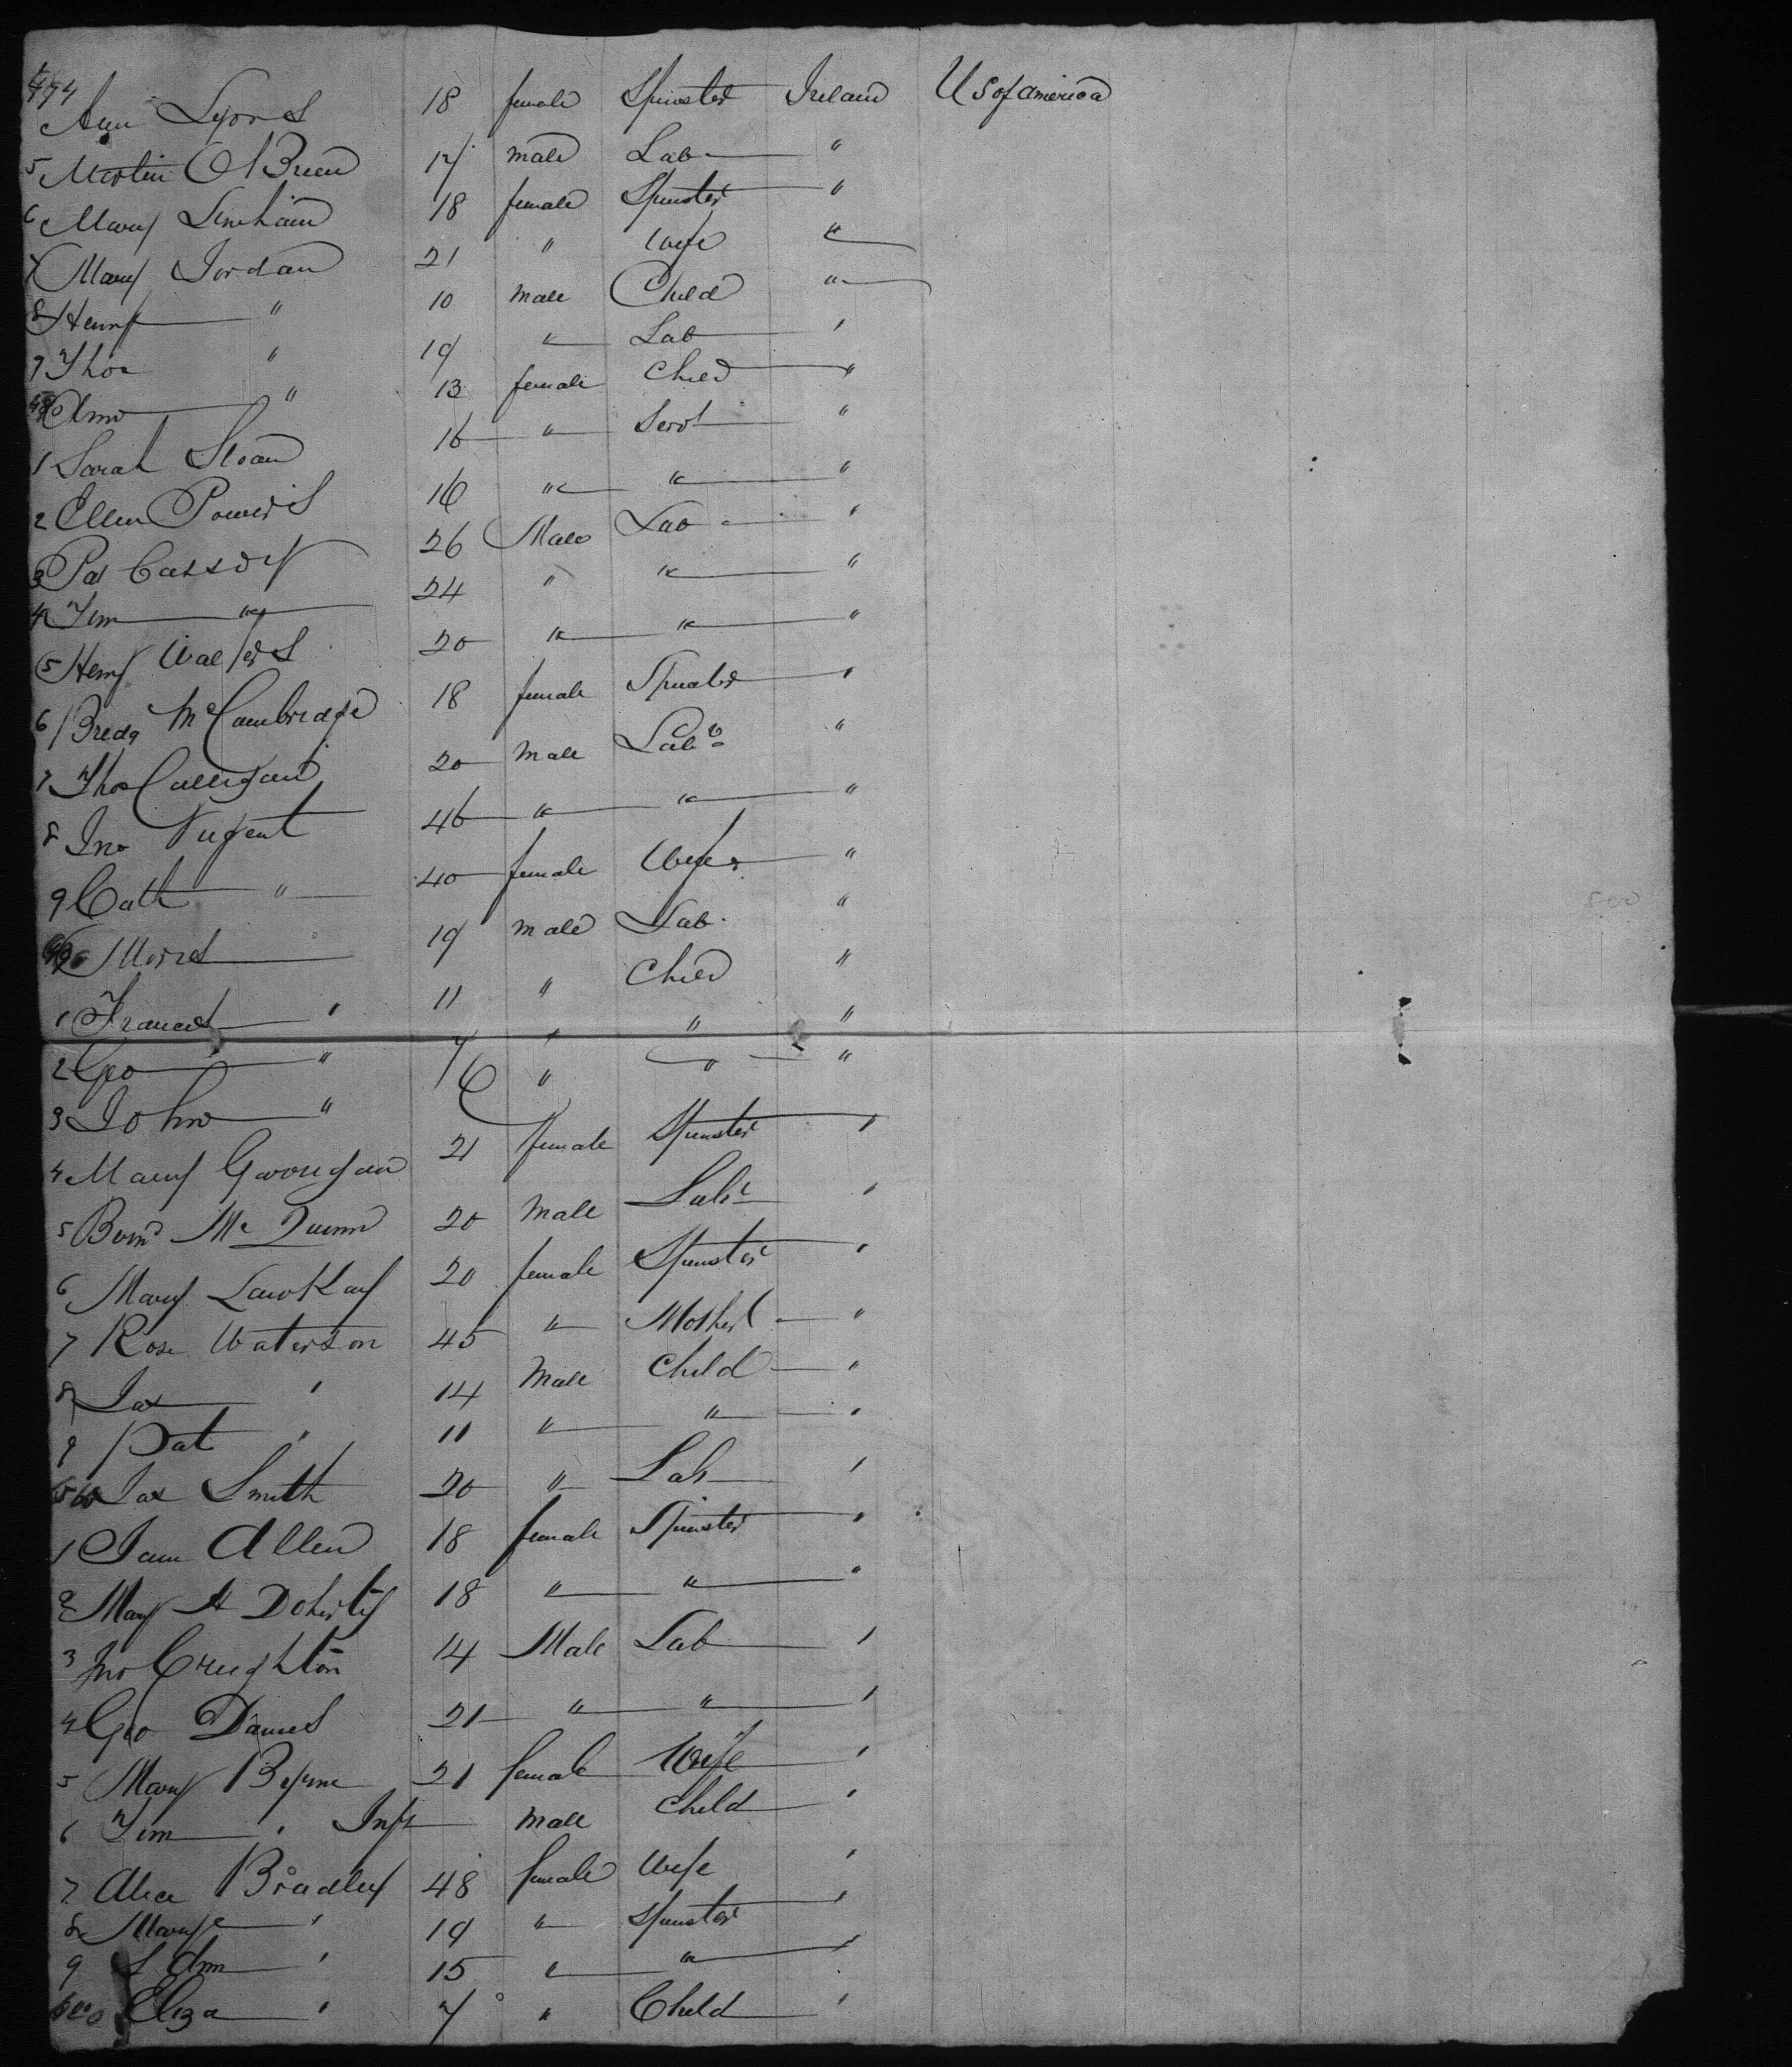 474 Ann Lyons 18 female Spinster Ireland U S of America
5 Martin O'Brien 17 male Lab "
6 Mary Linehan 18 female Spinster "
7 Mary Jordan 21 " Wife "
8 Henry " 10 male Child "
9 Thos " 19 " Lab "
480 Ann " 13 female Child "
1 Sarah Sloan 16 " Servt "
2 Ellen Powers 16 " " "
3 Pat Cassdy 26 Male Lab "
4 Tim " 24 " " "
5 Henry Walters 20 " " "
6 Bredg McCambridge 18 female Spinster "
7 Thos Calligan 20 male Labr "
8 Jno Nugent 46 " " "
9 Cath " 40 female Wife "
490 Morris 19 male Lab "
1 Frances " 11 " Child "
2 Geo " 7 " " "
3 John " 6 " " "
4 Mary 21 female Spinster "
5 Bernd McQuinn 20 male Labr "
6 Mary 20 female Spinster "
7 Rose Waterson 45 " Mother "
8 Jas " 14 Male Child "
9 Pat " 11 " " "
500 Jas Smith 20 " Lab "
1 Jane Allen 18 female Spinster "
2 Mary A Doherty 18 " " "
3 Jno Creighton 14 Male Lab "
4 Geo Daniels 21 " " "
5 Mary Byrne 21 female Wife "
6 Tim " Inft male Child "
7 Alice Bradley 48 female Wife "
8 Mary " 19 " Spinster "
9 Ann " 15 " " "
Eliza " 7 " Child "